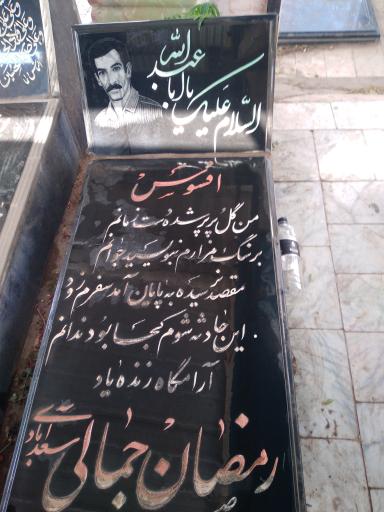 السلام علیک یا ابا عبدالله
افسوس
من گل پرپر شده دست زمانم
بر سنگ مزارم بنویسید جوانم
مقصد نرسیده به پایان آمد سفرم زود
این حادثه شوم کجا بود ندانم
آرامگاه زنده یاد
رمضان جمالی
سعدی آبادی